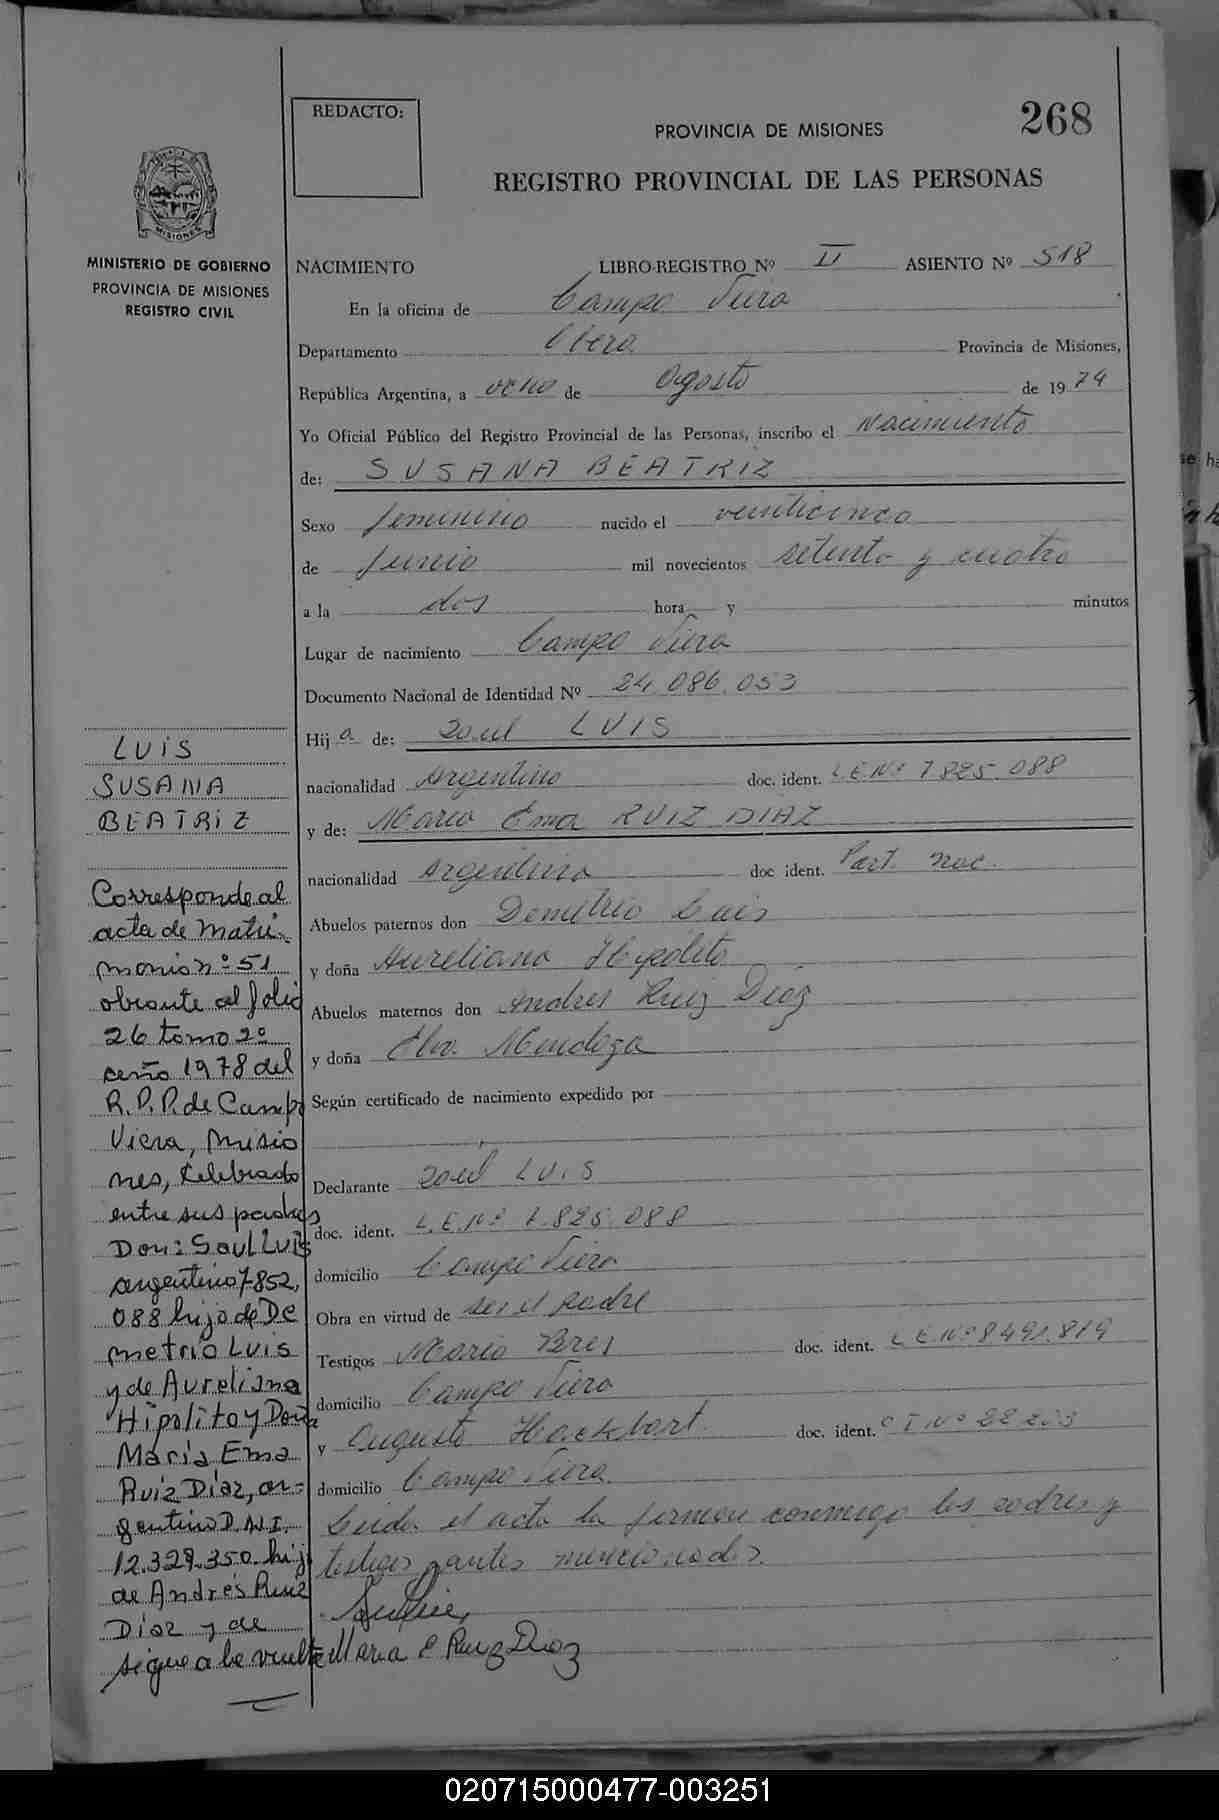 REDACTO:
PROVINCIA DE MISIONES
268
REGISTRO PROVINCIAL DE LAS PERSONAS
MISIONES
MINISTERIO DE GOBIERNO
PROVINCIA DE MISIONES
REGISTRO CIVIL
NACIMIENTO LIBRO-REGISTRO Nº II ASIENTO Nº 518
En la oficina de Campo Viera
Departamento Obera Provincia de Misiones,
República Argentina, a ocho de Agosto de 1974
Yo Oficial Público del Registro Provincial de las Personas, inscribo el Nacimiento
de: SUSANA BEATRIZ
Sexo femenino nacido el veinticinco
de Junio mil novecientos setenta y cuatro
a la dos hora y minutos
Lugar de nacimiento Campo Viera
Documento Nacional de Identidad Nº 24.086.053
Hija de: Saul LUIS
nacionalidad Argentino doc. ident. L.E.Nº 7825.088
y de: Maria Ema RUIZ DIAZ
nacionalidad Argentina doc ident. Part. nac.
Abuelos paternos don Demetrio Luis
y doña Aureliana Hipólito
Abuelos maternos don Andres Ruiz Diaz
y doña Mendoza
Según certificado de nacimiento expedido por
Declarante Saul LUIS
doc. ident. L.E.Nº 7.825.088
domicilio Campo Viera
Obra en virtud de ser el padre
Testigos Mario Bres doc. ident. L E Nº 8491.819
domicilio Campo Viera
y Augusto Hackbart doc. ident. C I Nº 22.203
domicilio Campo Viera
Leida el acta la firman conmigo los padres y
testigos antes mencionados.
Maria E Ruiz Diaz
LUIS
SUSANA
BEATRIZ
Corresponde al
acta de Matri-
monio nº 51
obrante al folio
26 tomo 2º
año 1978 del
R.P.P. de Campo
Viera, Misio
nes, celebrado
entre sus padres
Don: Saúl Luis
argentino 7852,
088 hijo de De
metrio Luis
y de Aureliana
Hipolito y Doña
María Ema
Ruiz Díaz, ar-
gentino D.N.I.
12.329.350. hij
de Andrés Ruiz
Díaz y de
sigue a la vuelta
020715000477-003251